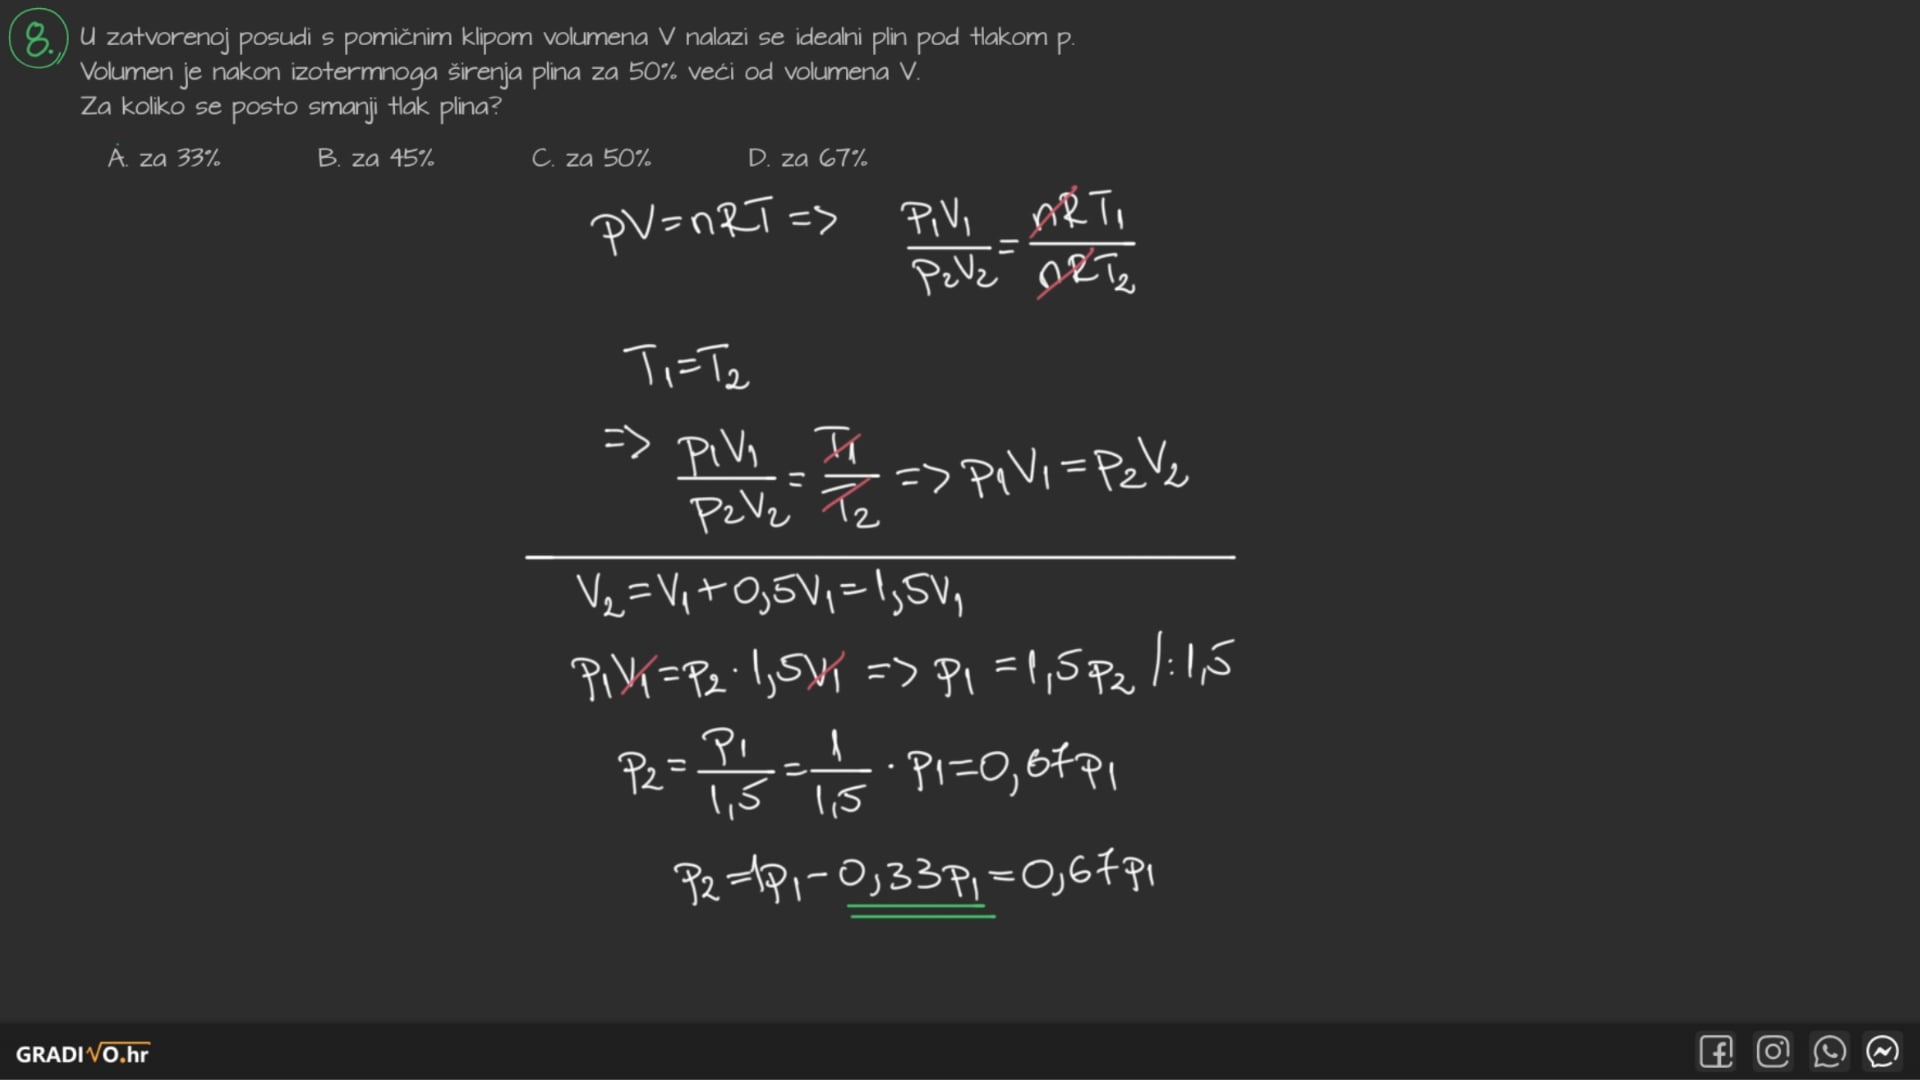 8. U zatvorenoj posudi s pomičnim klipom volumena V nalazi se idealni plin pod tlakom p.
Volumen je nakon izotermnoga širenja plina za 50% veći od volumena V.
Za koliko se posto smanji tlak plina?
A. za 33% B. za 45% C. za 50% D. za 67%
pV=nRT => p₁V₁/p₂V₂ = nRT₁/nRT₂
T₁=T₂
=> p₁V₁/p₂V₂ = T₁/T₂ => p₁V₁=p₂V₂
V₂=V₁+0,5V₁=1,5V₁
p₁V₁=p₂·1,5V₁ => p₁=1,5p₂ /:1,5
p₂=p₁/1,5=1/1,5·p₁=0,67p₁
p₂=1p₁-0,33p₁=0,67p₁
GRADIVO.hr